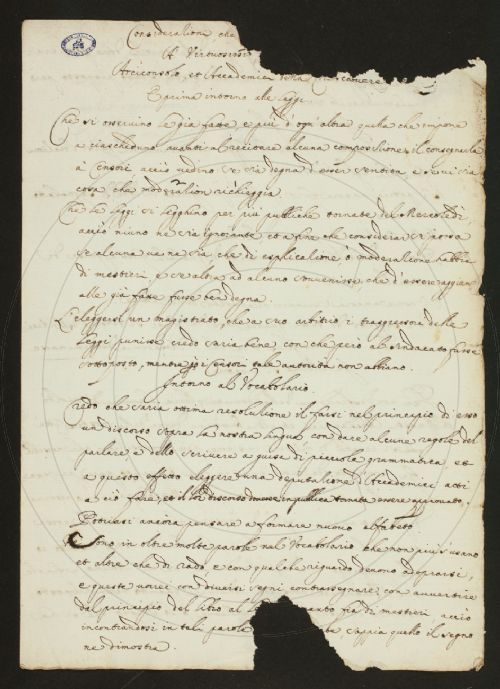 Considerazione, che
A Virtuosissi
Arciconsolo, et Accademici della
E prima intorno alle leggi
Che si osservino le già fatte e più d'ogn'altra quella che impone
a ciascheduno avanti al recitare alcuna composizione, il consegnarla
à Censori acciò vedino se sia degna d'esser sentita e se vi sia
cosa che moderazion richieggia
Che le leggi si legghino per più pubbliche tornate del Mercoledì
acciò niuno ne sia ignorante et a fine che considerar si possa
se alcuna ve ne sia che di esplicazione ò moderazione habbia
di mestieri e se altra ad alcuno sovvenisse che d'essere
alle già fatte fusse ben degna.
L'eleggersi un magistrato, che a suo arbitrio i trasgressori delle
leggi punisse credo saria bene con che però al sindacato fusse
sottoposto, mentre i Censori tale autorità non abbiano.
Intorno al Vocabolario
Credo che saria ottima resoluzione il farsi nel principio di esso
un discorso sopra la nostra lingua con dare alcune regole del
parlare e dello scrivere a guisa di piccola grammatica et
a questo effetto eleggere una deputazione d'Accademici atti
a ciò fare, et il discorso dovesse in pubblica tornata essere
Potriasi ancora pensare a formare nuovo alfabeto
Sono in oltre molte parole nel Vocabolario che non più s'usano
et altre che di rado e con qualche riguardo devono adoprarsi,
e queste vorrei con diversi segni contrassegnarci con avvertire
dal principio del libro al fia di mestieri acciò
incontrandosi in tali parole sappia quello il segno
ne dimostra.